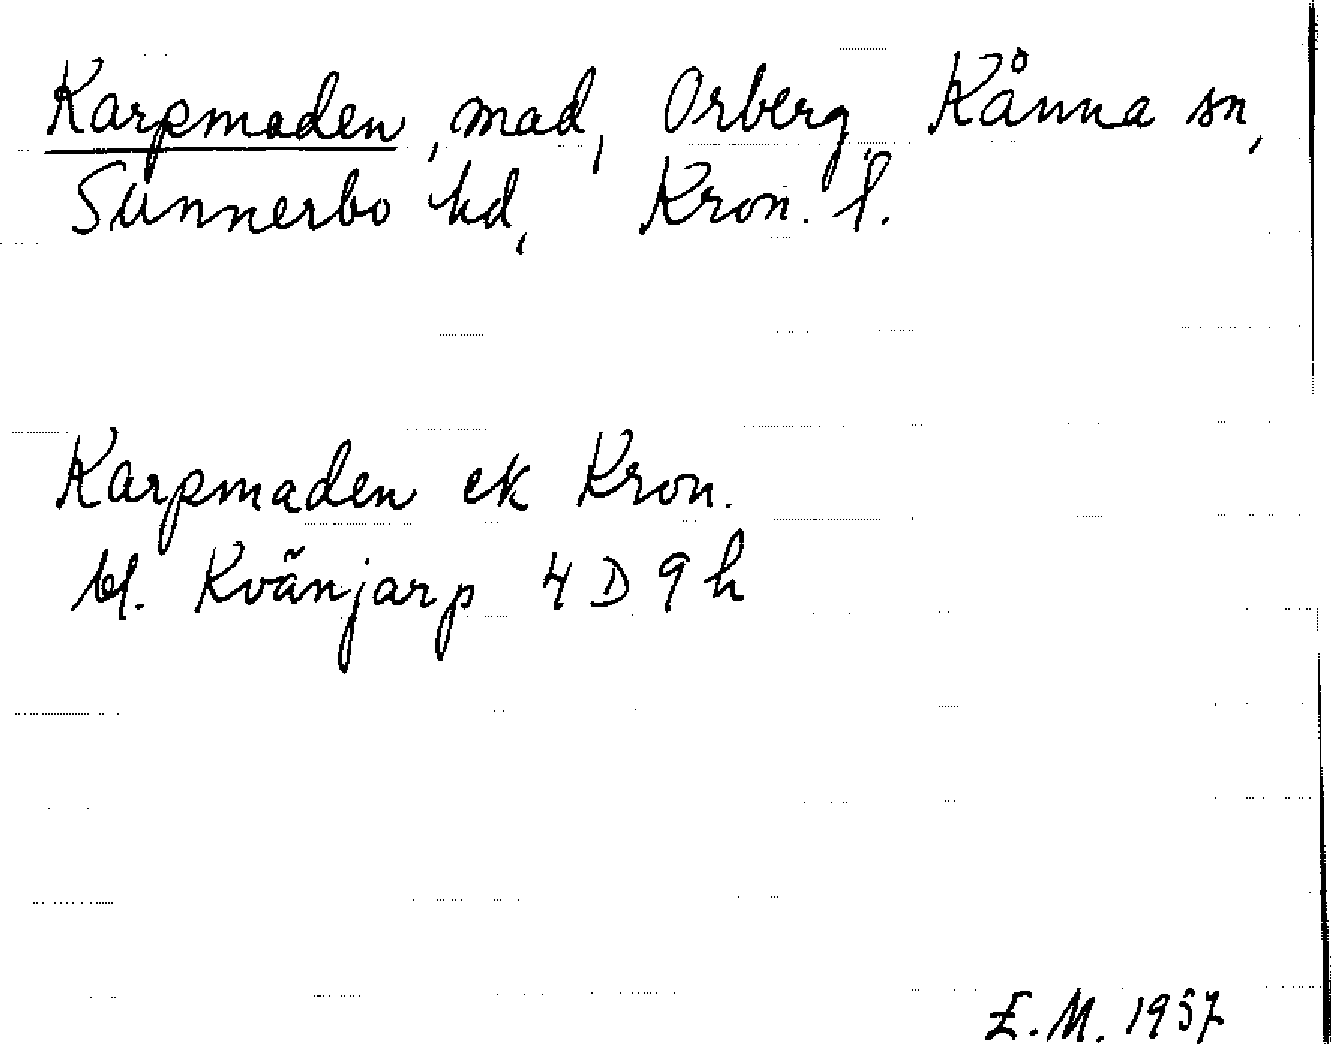 Karpmaden, mad, Orberg, Kånna sn,
Sunnerbo hd, Kron. l.
Karpmaden ek Kron.
bl. Kvänjarp 4 D 9 h
E. M. 1957